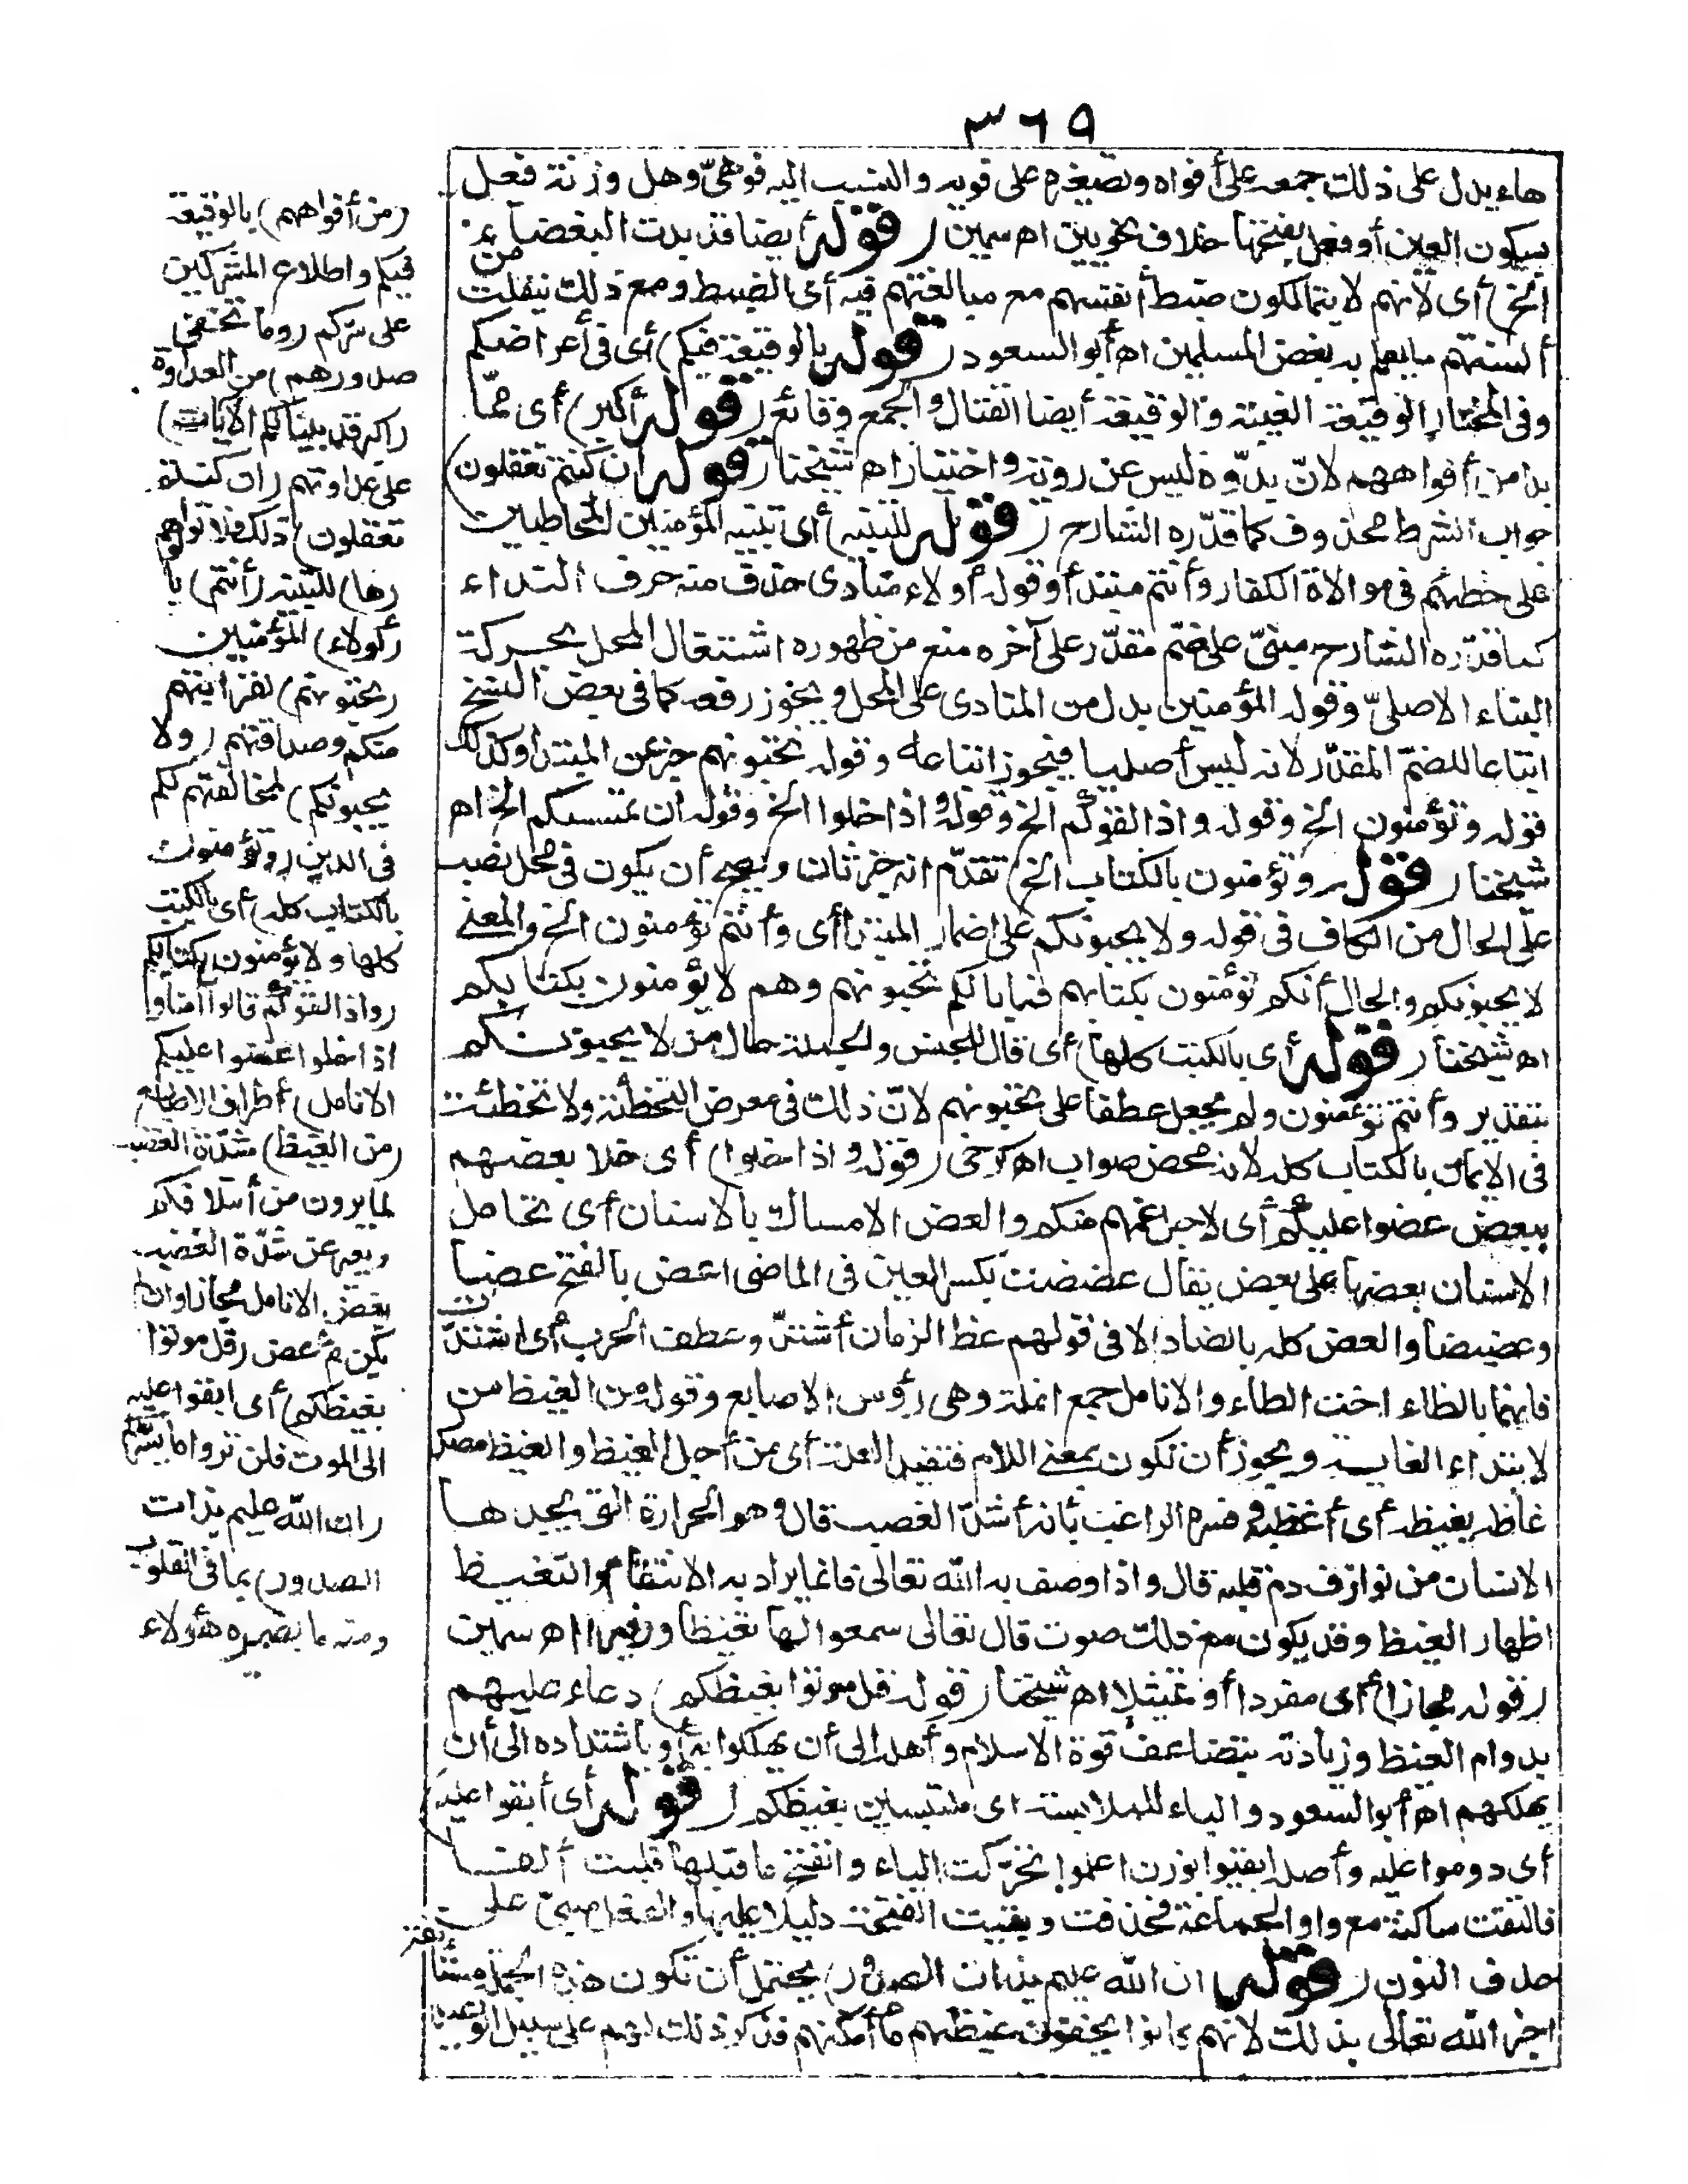 ٣٦٩
هاء يدل على ذلك جمعه على أفواه وتصغيره على فويه والنسب اليه فوهىّ وهل وزنه فعل
بسكون العين أو فعل بفتحها خلاف نحويين اه سمين (قوله أيضا قد بدت البغضاء من
الخ) أى لانهم لا يتمالكون ضبط أنفسهم مع مبالغتهم فيه أى الضبط ومع ذلك ينفلت
ألسنتهم ما يعلم به بغض المسلمين اه أبو السعود (قوله بالوقيعة فيكم) أى فى أعراضكم
وفى المختار الوقيعة الغيبة والوقيعة أيضا القتال والجمع وقائع (قوله أكبر) أى مما
بدا من أفواههم لانّ بدوّه ليس عن روية واختيار اه شيخنا (قوله ان كنتم تعقلون)
جواب الشرط محذوف كما قدّره الشارح (قوله للتنبيه) أى تنبيه المؤمنين المخاطبين
على خطئهم فى موالاة الكفار وأنتم مبتدأ وقوله أولاء منادى حذف منه حرف النداء
كما قدّره الشارح مبنىّ على ضم مقدّر على آخره منع من ظهوره اشتغال المحل بحركة
البناء الاصلىّ وقوله المؤمنين بدل من المنادى على المحل ويجوز رفعه كما فى بعض النسخ
اتباعا للضمّ المقدّر لانه ليس أصليا فيجوز اتباعه وقوله تحبونهم خبر عن المبتدا وكذلك
قوله وتؤمنون الخ وقوله واذا لقوكم الخ وقوله واذا خلوا الخ وقوله ان تمسسكم الخ اه
شيخنا (قوله وتؤمنون بالكتاب الخ) تقدّم انه خبر ثان ويصح أن يكون فى محل نصب
على الحال من الكاف فى قوله ولا يحبونكم على اضمار المبتدا أى وأنتم تؤمنون الخ والمعنى
لا يحبونكم والحال أنكم تؤمنون بكتابهم فما بالكم تحبونهم وهم لا يؤمنون بكتابكم
اه شيخنا (قوله أى بالكتب كلها) أى فال للجنس والجملة حال من لا يحبونكم
بتقدير وأنتم تؤمنون ولم يجعل عطفا على تحبونهم لانّ ذلك فى معرض التخطئة ولا تخطئة
فى الايمان بالكتاب كله لانه محض صواب اه كرخى (قوله واذا خلوا) أى خلا بعضهم
ببعض عضوا عليكم أى لاجل غمهم منكم والعض الامساك بالاسنان أى تحامل
الاسنان بعضها على بعض يقال عضضت بكسر العين فى الماضى اعض بالفتح عضا
وعضيضا والعض كله بالضاد الا فى قولهم عظ الزمان أشتدّ وعظت الحرب أى اشتدّت
فانهما بالظاء اخت الطاء والانامل جمع انملة وهى رؤس الاصابع وقوله من الغيظ من
لابتداء الغاية ويجوز أن تكون بمعنى اللام فتفيد العلة أى من أجل الغيظ والغيظ مصدر
غاظه يغيظه أى أغضبه وفسره الراغب بأنه أشدّ الغضب قال وهو الحرارة التى يجدها
الانسان من نوازف دم قلبه قال واذا وصف به الله تعالى فانما يراد به الانتقام والتغيظ
اظهار الغيظ وقد يكون مع ذلك صوت قال تعالى سمعوا لها تغيظا وزفيرا اه سمين
(قوله مجازا) أى مفردا أو تمثيلا اه شيخنا (قوله قل موتوا بغيظكم) دعاء عليهم
بدوام الغيظ وزيادته بتضاعف قوة الاسلام وأهله الى أن يهلكوا به أو باشتداده الى أن
يهلكهم اه أبو السعود والباء للملابسة اى متلبسين بغيظكم (قوله أى أبقوا عليه)
أى دوموا عليه وأصله ابقيوا بوزن اعلموا تحرّكت الياء وانفتح ما قبلها قلبت ألفا
فالتقت ساكنة مع واو الجماعة فحذفت وبقيت الفتحة دليلا عليها والفعل مبنىّ على
حذف النون (قوله ان الله عليم بذات الصدور) يحتمل أن تكون هذه الجملة مستأنفة
اخبر الله تعالى بذلك لانهم كانوا يخفون غيظهم ما أمكنهم فذكر ذلك لهم على سبيل الوعيد
(من أفواههم) بالوقيعة
فيكم واطلاع المشركين
على سركم (وما تخفى
صدورهم) من العداوة
(أكبر قد بينا لكم الآيات)
على عداوتهم (ان كنتم
تعقلون) ذلك فلا توالوهم
(ها) للتنبيه (أنتم) يا
(أولاء) المؤمنين
(تحبونهم) لقرابتهم
منكم وصداقتهم (ولا
يحبونكم) لمخالفتهم لكم
فى الدين (وتؤمنون
بالكتاب كله) أى بالكتب
كلها ولا يؤمنون بكتابكم
(واذا لقوكم قالوا آمنا وا
اذا خلوا عضوا عليكم
الانامل) أطراف الاصابع
(من الغيظ) شدّة الغضب
لما يرون من أئتلافكم
ويعبر عن شدّة الغضب
بعض الانامل مجازا وان لم
يكن ثم عض (قل موتوا
بغيظكم) أى ابقوا عليه
الى الموت فلن تروا ما يسركم
(ان الله عليم بذات
الصدور) بما فى القلوب
ومنه ما يضمره هؤلاء